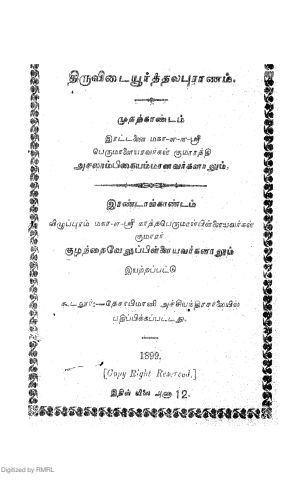 திருவிடையூர்த்தலபுராணம்.
முதற்காண்டம்
இரட்டணை மகா-ள-ள-ஸ்ரீ
பெருமாளையரவர்கள் குமாரத்தி
அசலாம்பிகையம்மானவர்களாலும்,
இரண்டாங்காண்டம்
விழுப்புரம் மகா-ள-ஸ்ரீ காத்தபெருமாள்பிள்ளையவர்கள்
குமாரர்
குழந்தைவேலுப்பிள்ளையவர்களாலும்
இயற்றப்பட்டு
கூடலூர்:—தேசாபிமானி அச்சியந்திரசாலையில்
பதிப்பிக்கப்பட்டது.
1899.
[Copy Right Reserved.]
இதின் விலை அணா 12.
Digitized by RMRL